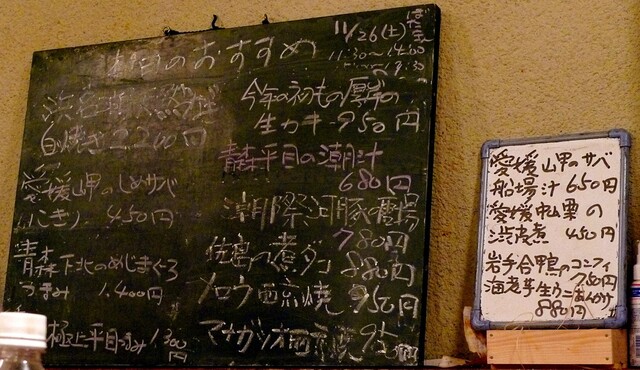 本日のおすすめ
11/26(土)
11:30〜14:00
白焼き 2,200円
愛媛山岬のしめサバ
450円
青森下北のめじまぐろ
つまみ 1,400円
極上平目つまみ 1,300円
今年の初もの厚岸の
生カキ 950円
青森平目の潮汁
680円
780円
佐島の煮ダコ 880円
メロウ西京焼 950円
マナガツオ西京焼 950円
愛媛山岬のサバ
船場汁 650円
愛媛中山栗の
渋皮煮 450円
岩手合鴨のコンフィ
750円
海老芋生ウニあんかけ
880円